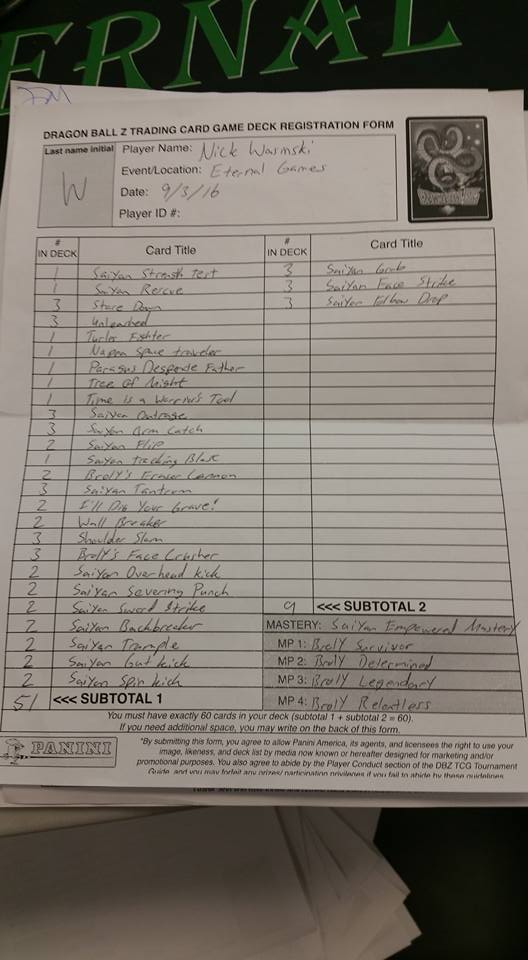 ERNAL
DRAGON BALL Z TRADING CARD GAME DECK REGISTRATION FORM
Last name initial
W
Player Name: Nick Warmski
Event/Location: Eternal Games
Date: 9/3/16
Player ID #:
# IN DECK Card Title # IN DECK Card Title
1 Saiyan Strength Test 3 Saiyan Grab
1 Saiyan Rescue 3 Saiyan Face Strike
3 Stare Down 3 Saiyan Elbow Drop
3 Unleashed
1 Turles Fighter
1 Nappa Space traveler
1 Paragus Desperate Father
1 Tree of Might
1 Time is a Warrior's Tool
3 Saiyan Outrage
3 Saiyan Arm Catch
2 Saiyan Flip
1 Saiyan tracking Blast
2 Broly's Eraser Cannon
3 Saiyan Tantrum
2 I'll Dig Your Grave!
2 Wall Breaker
3 Shoulder Slam
3 Broly's Face Crusher
2 Saiyan Overhead kick
2 Saiyan Severing Punch
2 Saiyan Sword Strike 9 <<< SUBTOTAL 2
2 Saiyan Backbreaker MASTERY: Saiyan Empowered Mastery
2 Saiyan Trample MP 1: Broly Survivor
2 Saiyan Gut kick MP 2: Broly Determined
2 Saiyan Spin kick MP 3: Broly Legendary
51 <<< SUBTOTAL 1 MP 4: Broly Relentless
You must have exactly 60 cards in your deck (subtotal 1 + subtotal 2 = 60).
If you need additional space, you may write on the back of this form.
PANINI
"By submitting this form, you agree to allow Panini America, its agents, and licensees the right to use your
image, likeness, and deck list by media now known or hereafter designed for marketing and/or
promotional purposes. You also agree to abide by the Player Conduct section of the DBZ TCG Tournament
Guide, and you may forfeit any prizes/ participation privileges if you fail to abide by these guidelines.